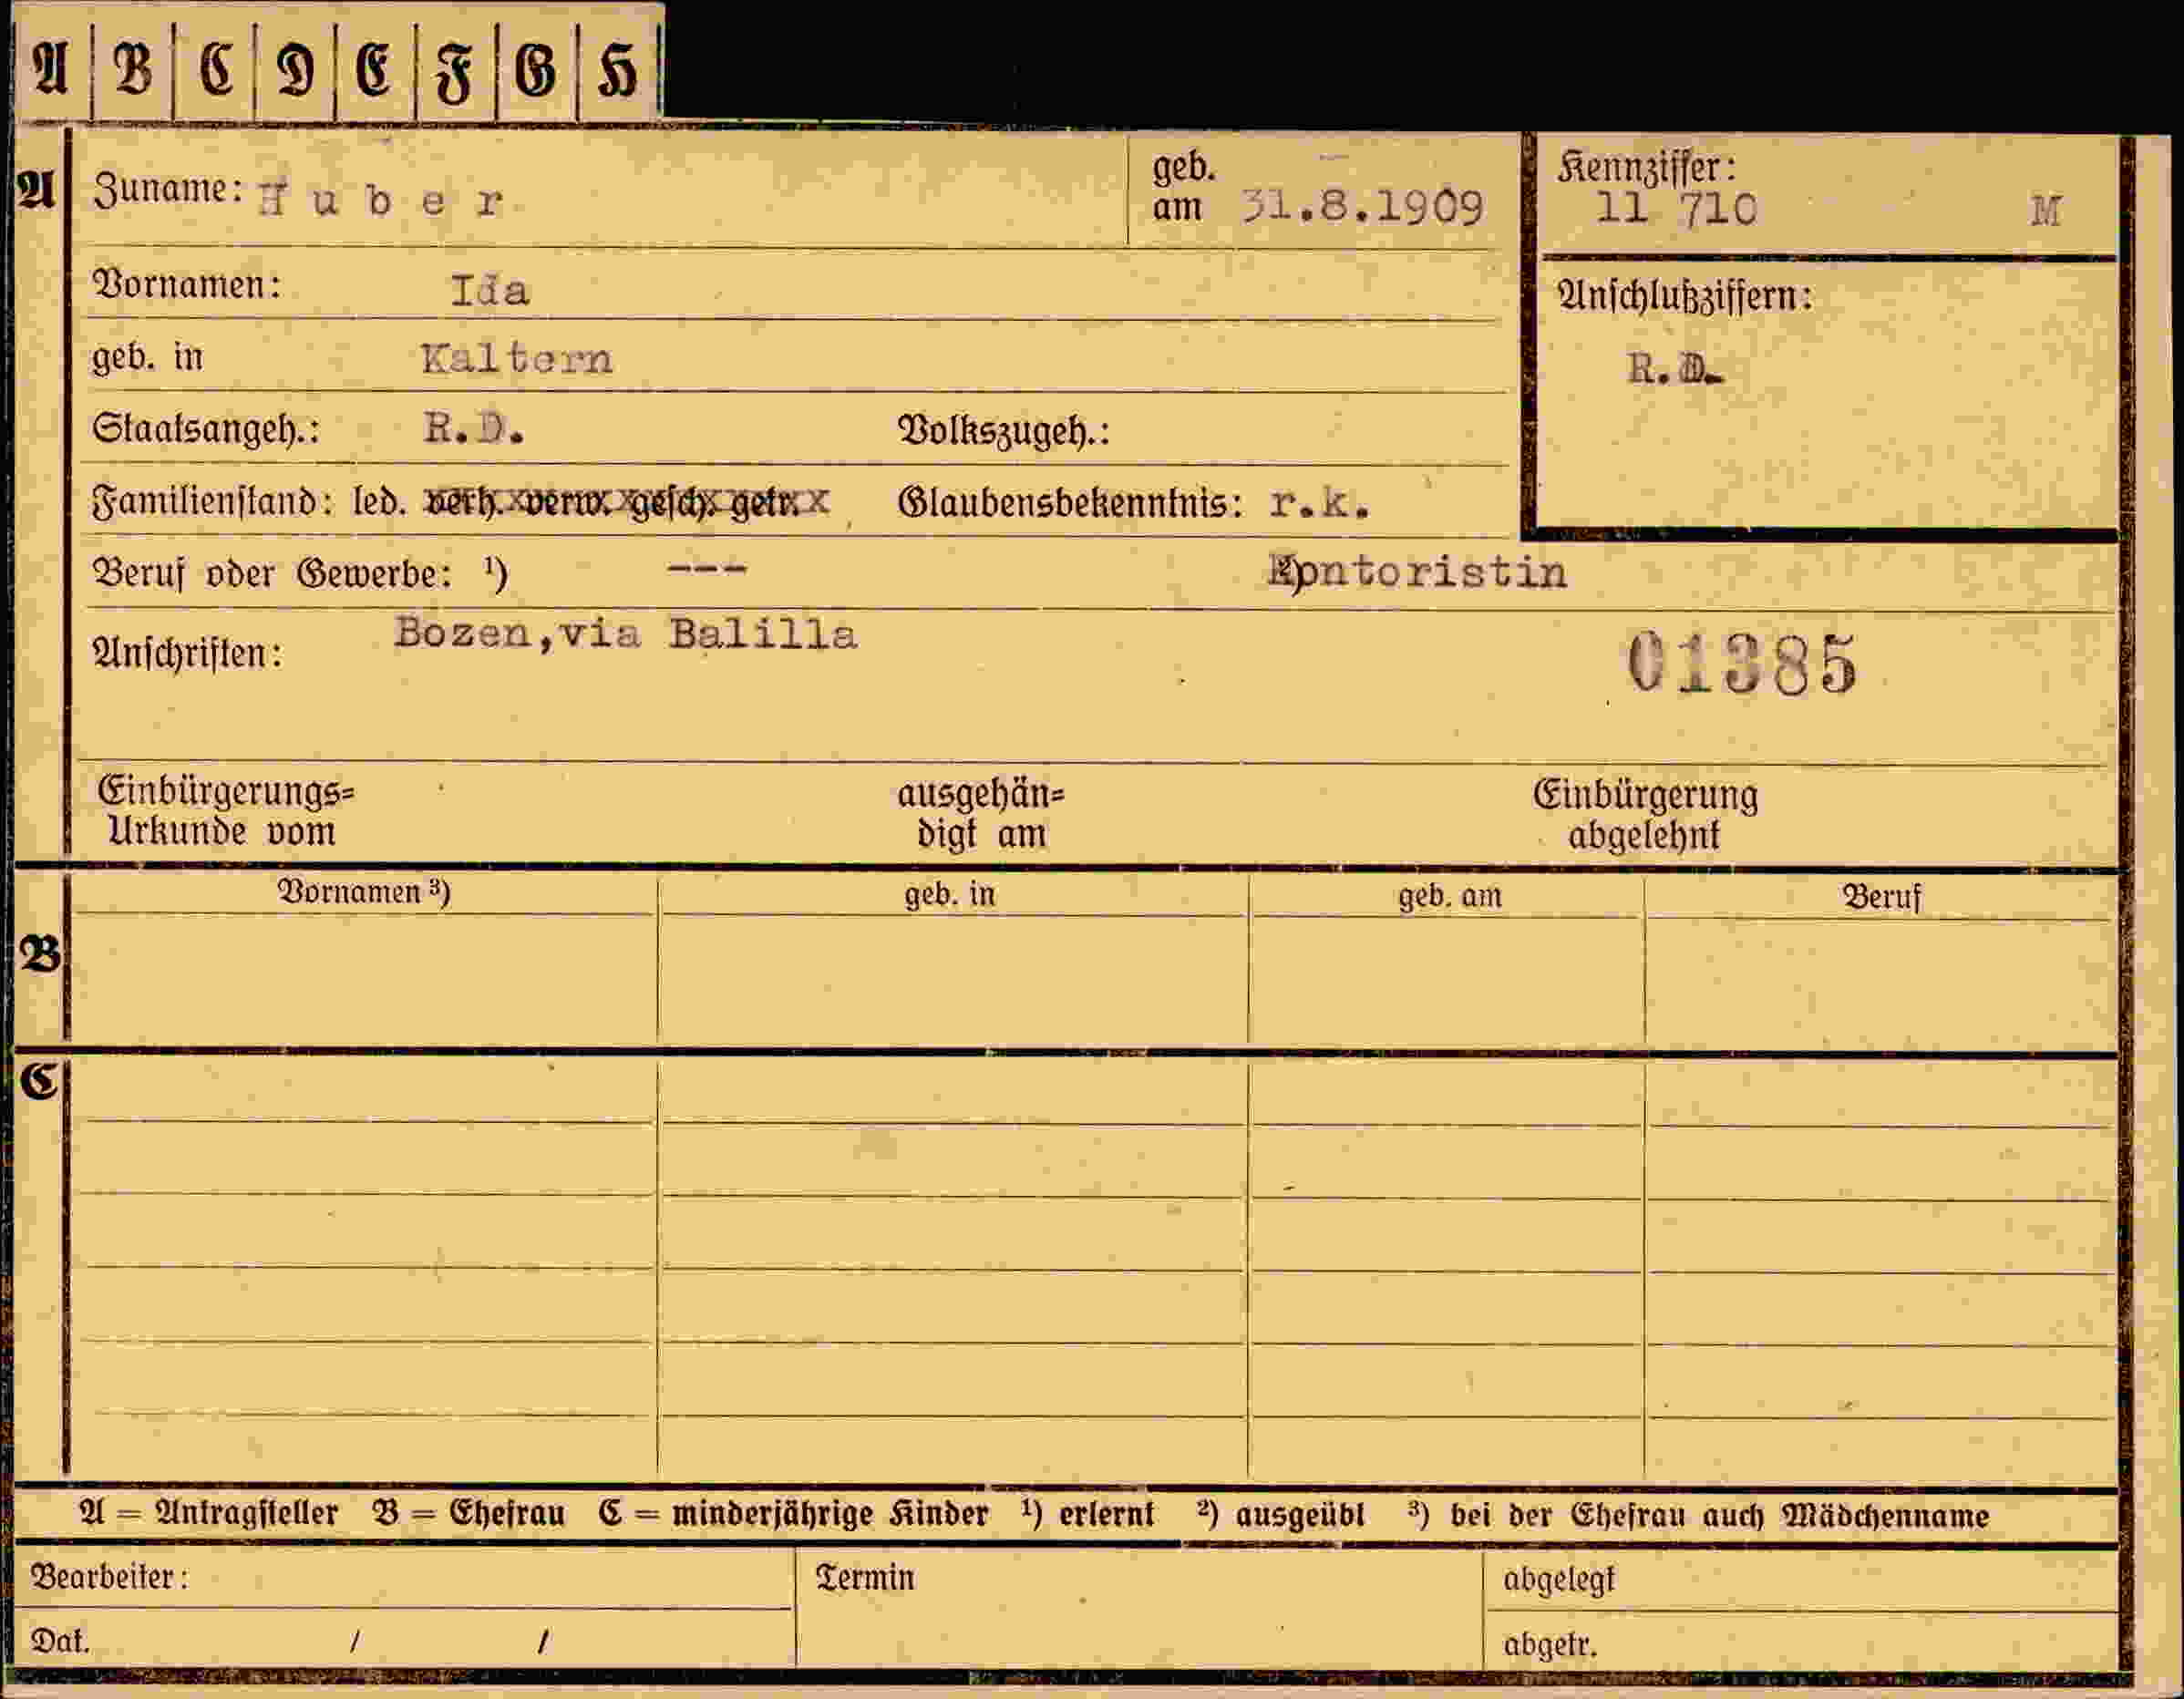 A B C D E F G H
A Zuname: Huber geb. am 31.8.1909 Kennziffer: 11 710 M
Vornamen: Ida Anschlußziffern:
geb. in Kaltern R.D.
Staatsangeh.: R.D. Volkszugeh.:
Familienstand: led. verh. verw. gesch. getr. Glaubensbekenntnis: r.k.
Beruf oder Gewerbe: ¹) --- Kontoristin
Anschriften: Bozen,via Balilla 01385
Einbürgerungs= ausgehän= Einbürgerung
Urkunde vom digt am abgelehnt
Vornamen ³) geb. in geb. am Beruf
B
C
A = Antragsteller B = Ehefrau C = minderjährige Kinder ¹) erlernt ²) ausgeübt ³) bei der Ehefrau auch Mädchenname
Bearbeiter: Termin abgelegt
Dat. / / abgetr.